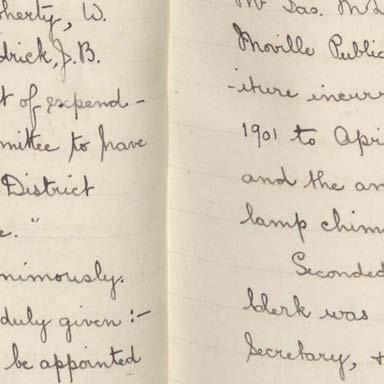 herty, W.
drick, J.B.
t of expend-
mittee to have
District
e."
nimously.
duly given :-
be appointed
Mr Jas. Mc
Moville Public
-iture incurr
1901 to Apri
and the am
lamp chim
Seconded
Clerk was
Secretary, +